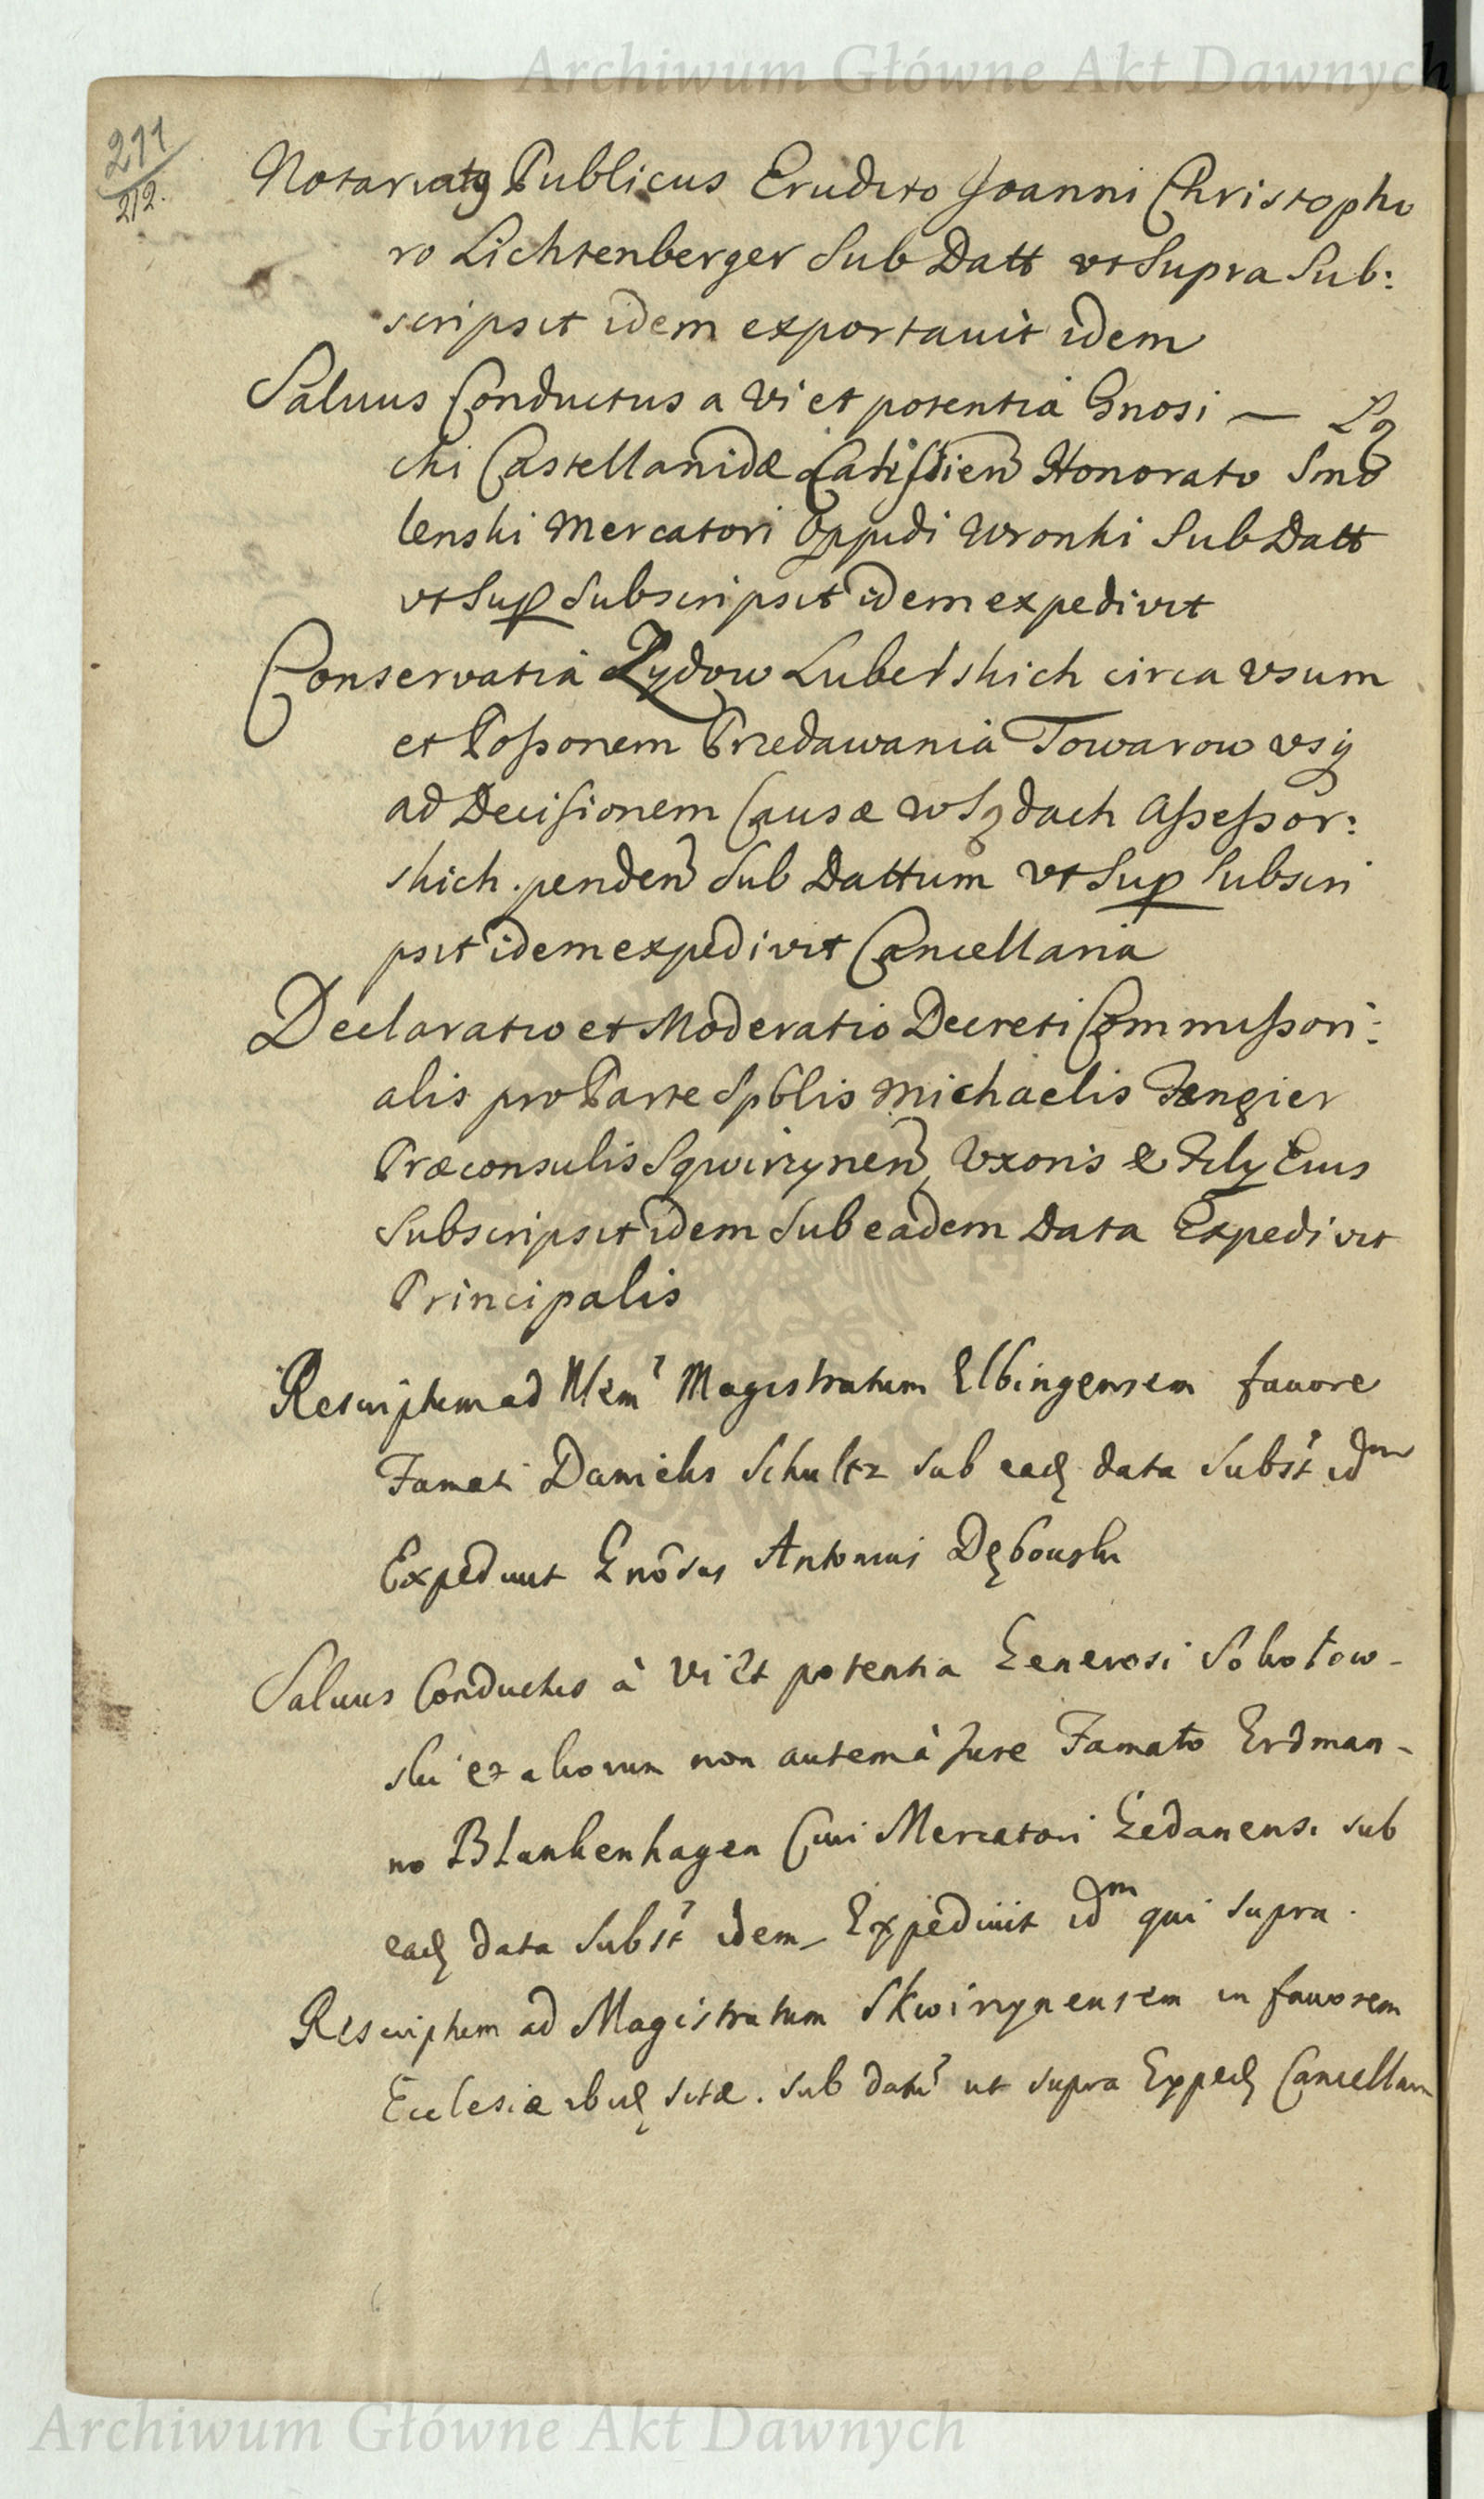 Archiwum Główne Akt Dawnych
211
212.
Notariatq Publicus Erudito Joanni Christopho
ro Lichtenberger Sub Datt vt Supra Sub:
scripsit idem exportauit idem
Saluus Conductus a vi et potentia Gnosi — Łą
cki Castellanidæ Calissien Honorato Smo
lenski Mercatori Oppidi Wronki Sub Datt
vt Sup Subscripsit idem expedivit
Conservatia Zydow Lubelskich circa vsum
et Possonem Przedawania Towarow vsq
ad Decisionem Causæ w Sądach Assessor:
skich. penden Sub Dattum vt Sup Subscri
psit idem expedivit Cancellaria
Declaratio et Moderatio Decreti Commissori:
alis pro Parte Spblis Michaelis Fengier
Præconsulis Sqwirzynen, Vxoris & Fily Eius
Subscripsit idem Sub eadem Data Expedivit
Principalis
Rescriptum ad Nlem Magistratum Elbingensem fauore
Famati Danielis Schultz sub eadq data Subst idm
Expediuit Gnosus Antonius Dębowski
Saluus Conductus à vi Et potentia Generosi Sokołow-
ski et aliorum non autem à Jure Famato Erdman-
no Blankenhagen Ciui Mercatori Gedanensi sub
eadq data Subst idem Expediuit idm qui supra.
Rescriptum ad Magistratum Skwirzynensem in fauorem
Ecclesiæ ibidq sitæ. sub datu ut supra Expedq Cancellaria
Archiwum Główne Akt Dawnych